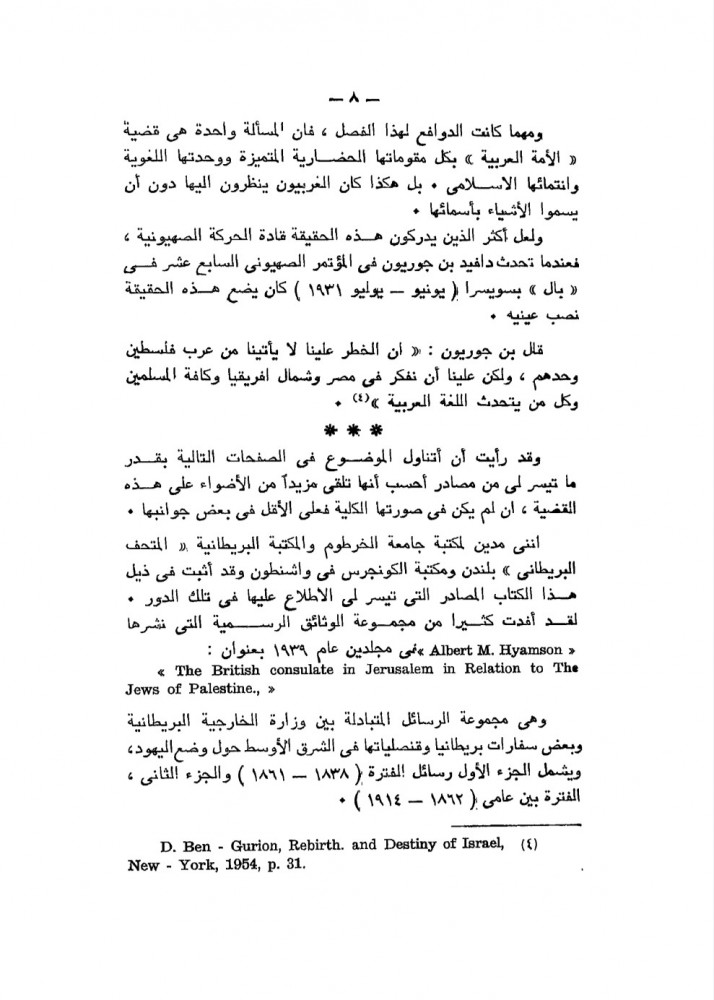 — ٨ —
ومهما كانت الدوافع لهذا الفصل ، فان المسألة واحدة هى قضية
« الأمة العربية » بكل مقوماتها الحضارية المتميزة ووحدتها اللغوية
وانتمائها الاسلامى ٠ بل هكذا كان الغربيون ينظرون اليها دون أن
يسموا الأشياء بأسمائها ٠
ولعل أكثر الذين يدركون هذه الحقيقة قادة الحركة الصهيونية ،
فعندما تحدث دافيد بن جوريون فى المؤتمر الصهيونى السابع عشر فى
« بال » بسويسرا ( يونيو — يوليو ١٩٣١ ) كان يضع هذه الحقيقة
نصب عينيه ٠
قال بن جوريون : « ان الخطر علينا لا يأتينا من عرب فلسطين
وحدهم ، ولكن علينا أن نفكر فى مصر وشمال افريقيا وكافة المسلمين
وكل من يتحدث اللغة العربية »(٤) ٠
✱ ✱ ✱
وقد رأيت أن أتناول الموضوع فى الصفحات التالية بقدر
ما تيسر لى من مصادر أحسب أنها تلقى مزيداً من الأضواء على هذه
القضية ، ان لم يكن فى صورتها الكلية فعلى الأقل فى بعض جوانبها ٠
اننى مدين لمكتبة جامعة الخرطوم والمكتبة البريطانية « المتحف
البريطانى » بلندن ومكتبة الكونجرس فى واشنطون وقد أثبت فى ذيل
هذا الكتاب المصادر التى تيسر لى الاطلاع عليها فى تلك الدور ٠
لقد أفدت كثيرا من مجموعة الوثائق الرسمية التى نشرها
« Albert M. Hyamson » فى مجلدين عام ١٩٣٩ بعنوان :
« The British consulate in Jerusalem in Relation to The
Jews of Palestine., »
وهى مجموعة الرسائل المتبادلة بين وزارة الخارجية البريطانية
وبعض سفارات بريطانيا وقنصلياتها فى الشرق الأوسط حول وضع اليهود،
ويشمل الجزء الأول رسائل الفترة ( ١٨٣٨ — ١٨٦١ ) والجزء الثانى ،
الفترة بين عامى ( ١٨٦٢ — ١٩١٤ ) ٠
D. Ben - Gurion, Rebirth. and Destiny of Israel, (٤)
New - York, 1954, p. 31.